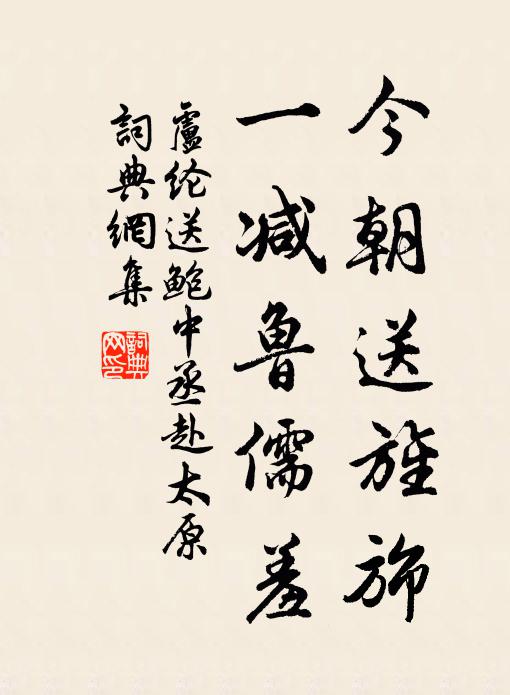 今朝送旌旆
一减魯儒羞
盧纶送鲍中丞赴太原
詞典網集
詞典网印